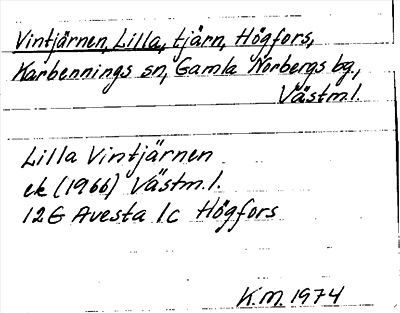 Vintjärnen, Lilla, tjärn, Högfors,
Karbennings sn, Gamla Norbergs bg.,
Västm.l.
Lilla Vintjärnen
ek (1966) Västm.l.
12G Avesta 1c Högfors
K.M. 1974